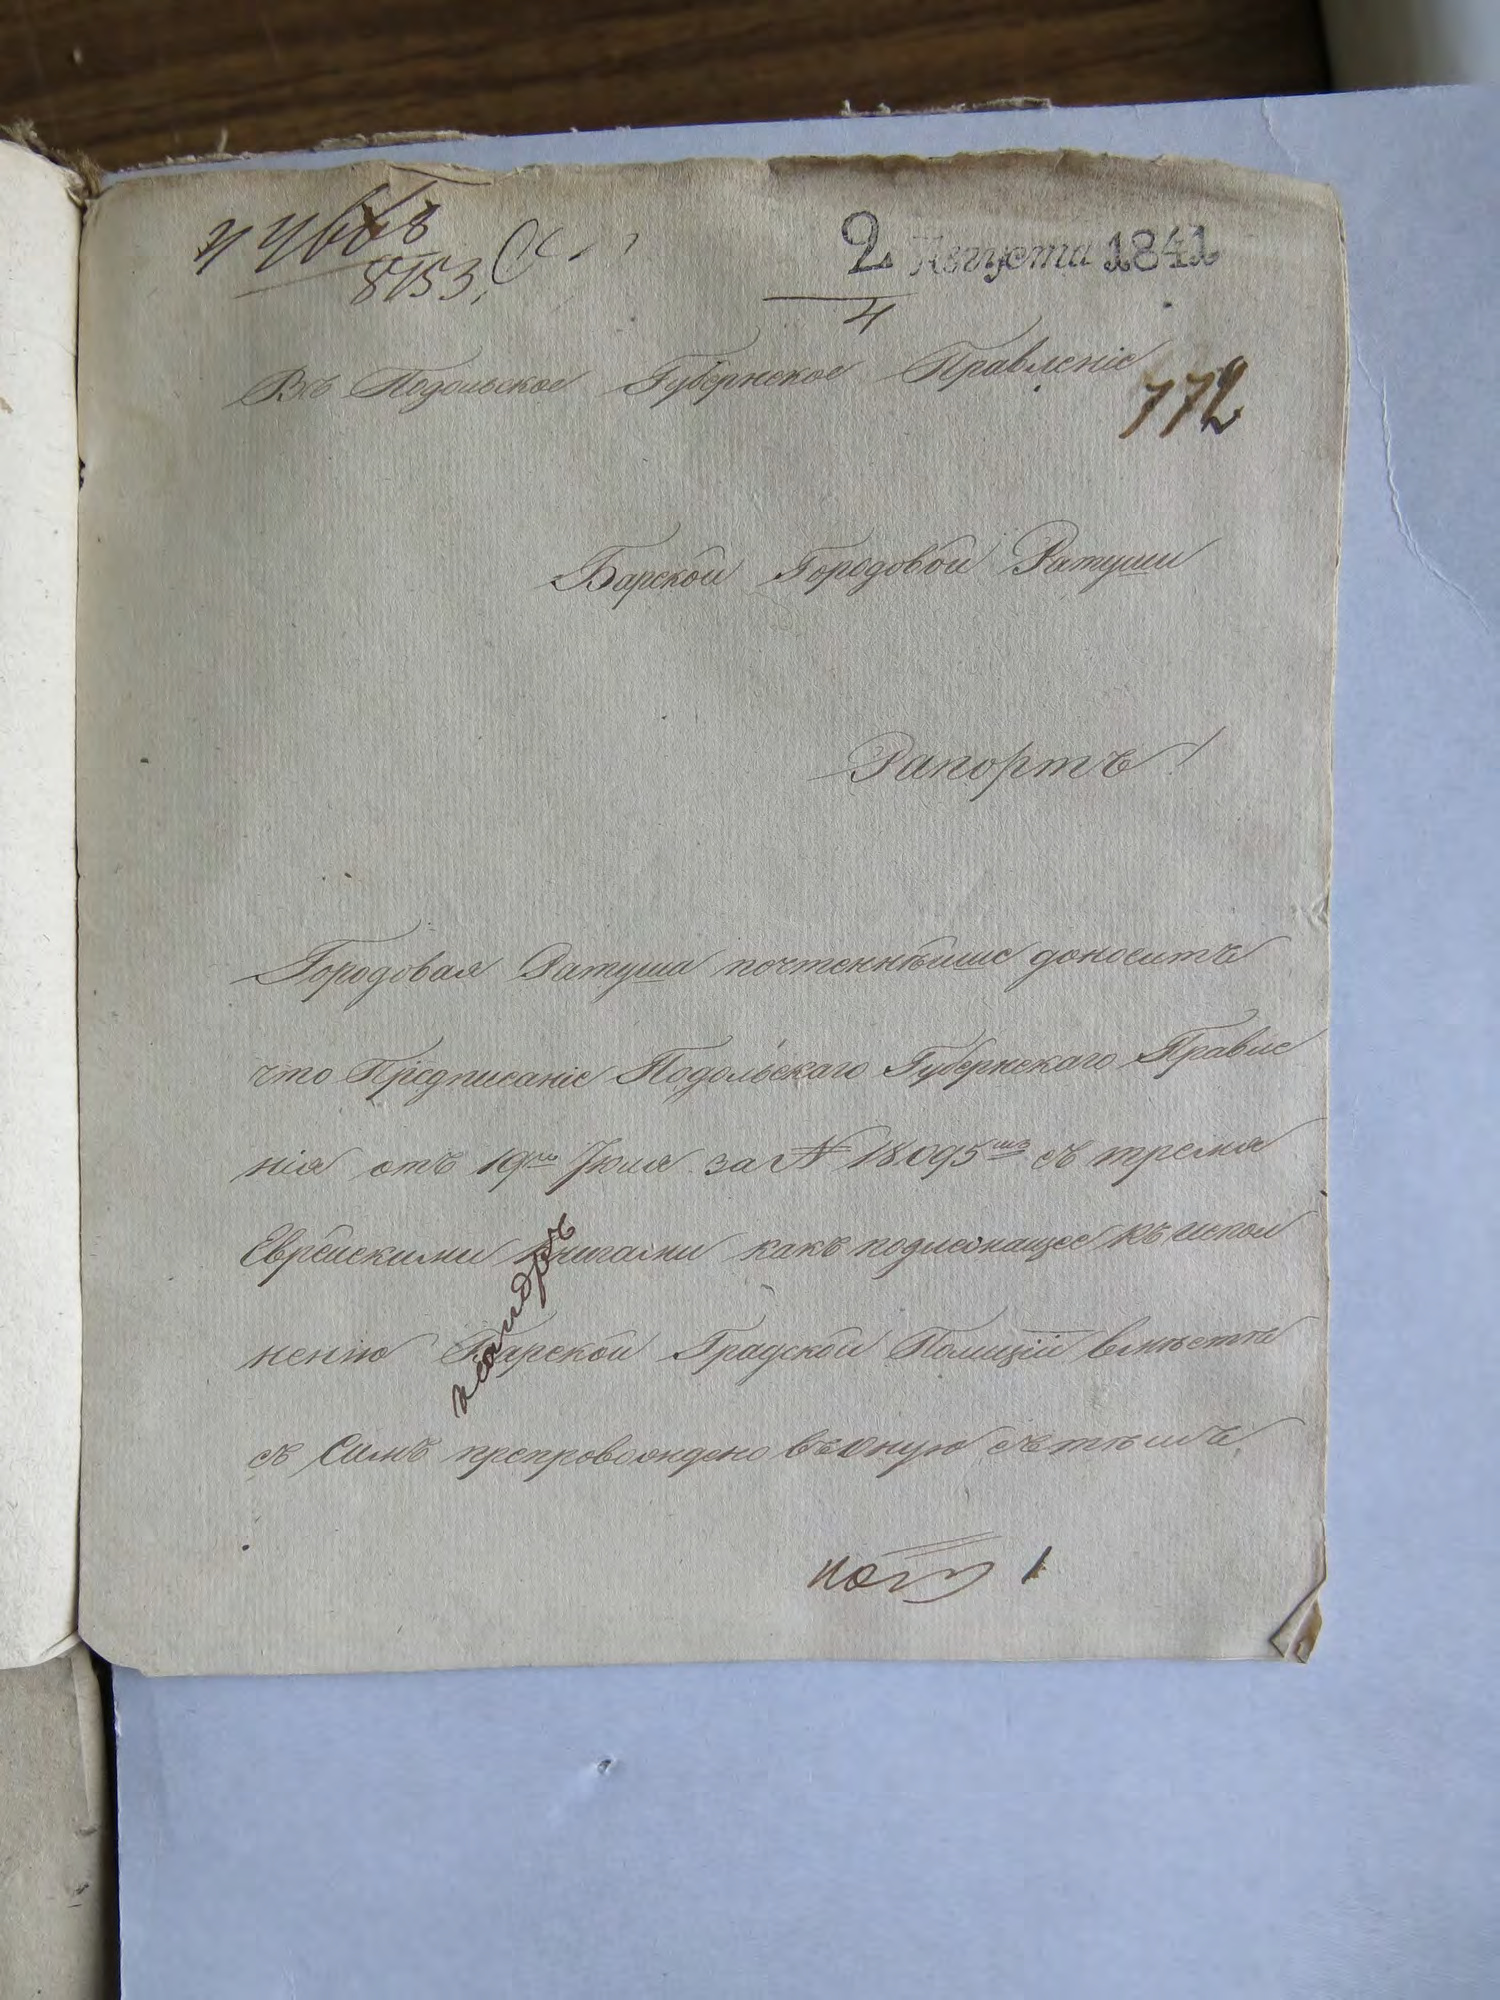 8153
2 Августа 1841
4
Въ Подольское Губернское Правленіе
772
Барской Городовой Ратуши
Рапортъ!
Городовая Ратуша почтеннѣйше доноситъ
что Предписаніе Подольскаго Губернскаго Правле
нія отъ 19го Іюля за № 18095мъ съ тремя
Еврейскими книгами какъ подлежащее къ испол
ненію Барской Градской Полиціи вмѣстѣ
съ Симъ препровождено въ оную съ тѣмъ